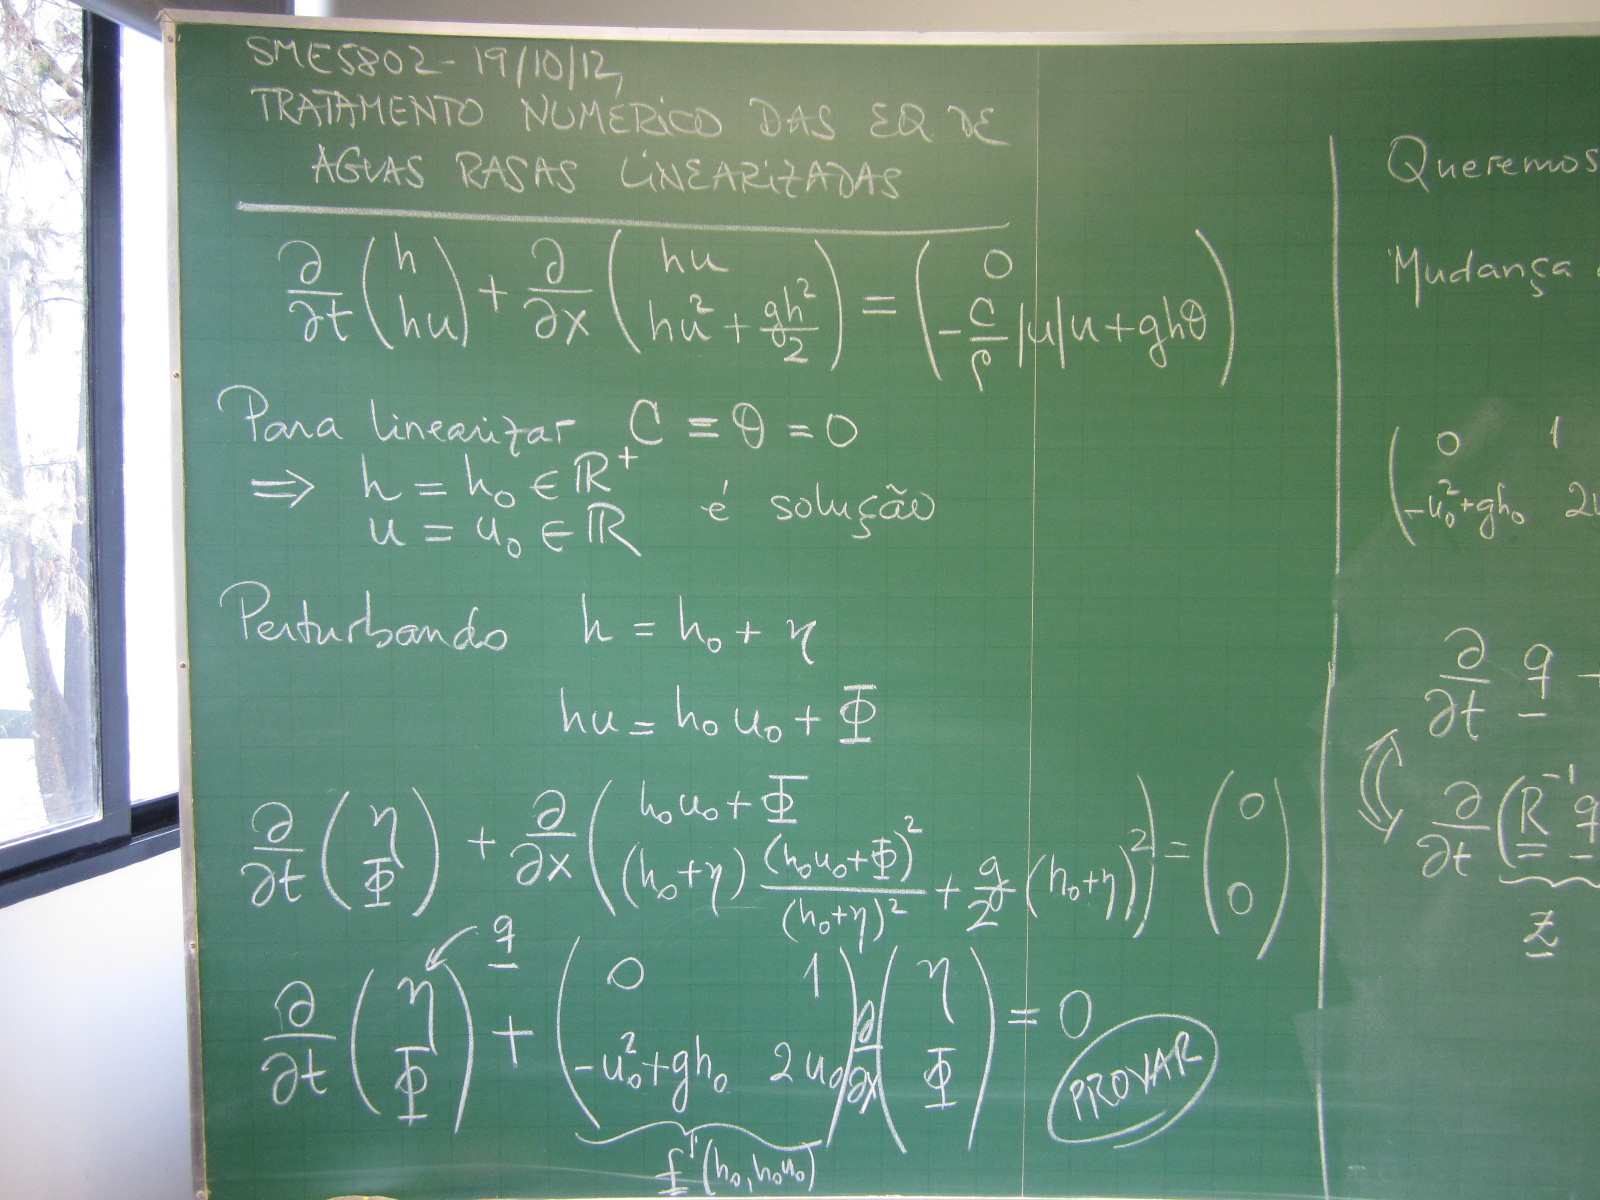 SME5802 - 19/10/12,
TRATAMENTO NUMÉRICO DAS EQ DE
AGUAS RASAS LINEARIZADAS
∂/∂t (h ; hu) + ∂/∂x (hu ; hu² + gh²/2) = (0 ; -C/ρ |u|u + ghθ)
Para linearizar C = θ = 0
⟹ h = h₀ ∈ ℝ⁺
u = u₀ ∈ ℝ é solução
Perturbando h = h₀ + η
hu = h₀u₀ + Φ
∂/∂t (η ; Φ) + ∂/∂x (h₀u₀ + Φ ; (h₀+η) (h₀u₀+Φ)²/(h₀+η)² + g/2 (h₀+η)²) = (0 ; 0)
q
∂/∂t (η ; Φ) + (0 1 ; -u₀²+gh₀ 2u₀) ∂/∂x (η ; Φ) = 0
PROVAR
f'(h₀, h₀u₀)
Queremos
Mudança
(0 1 ; -u₀²+gh₀ 2u
∂/∂t q +
∂/∂t (R⁻¹ q
z